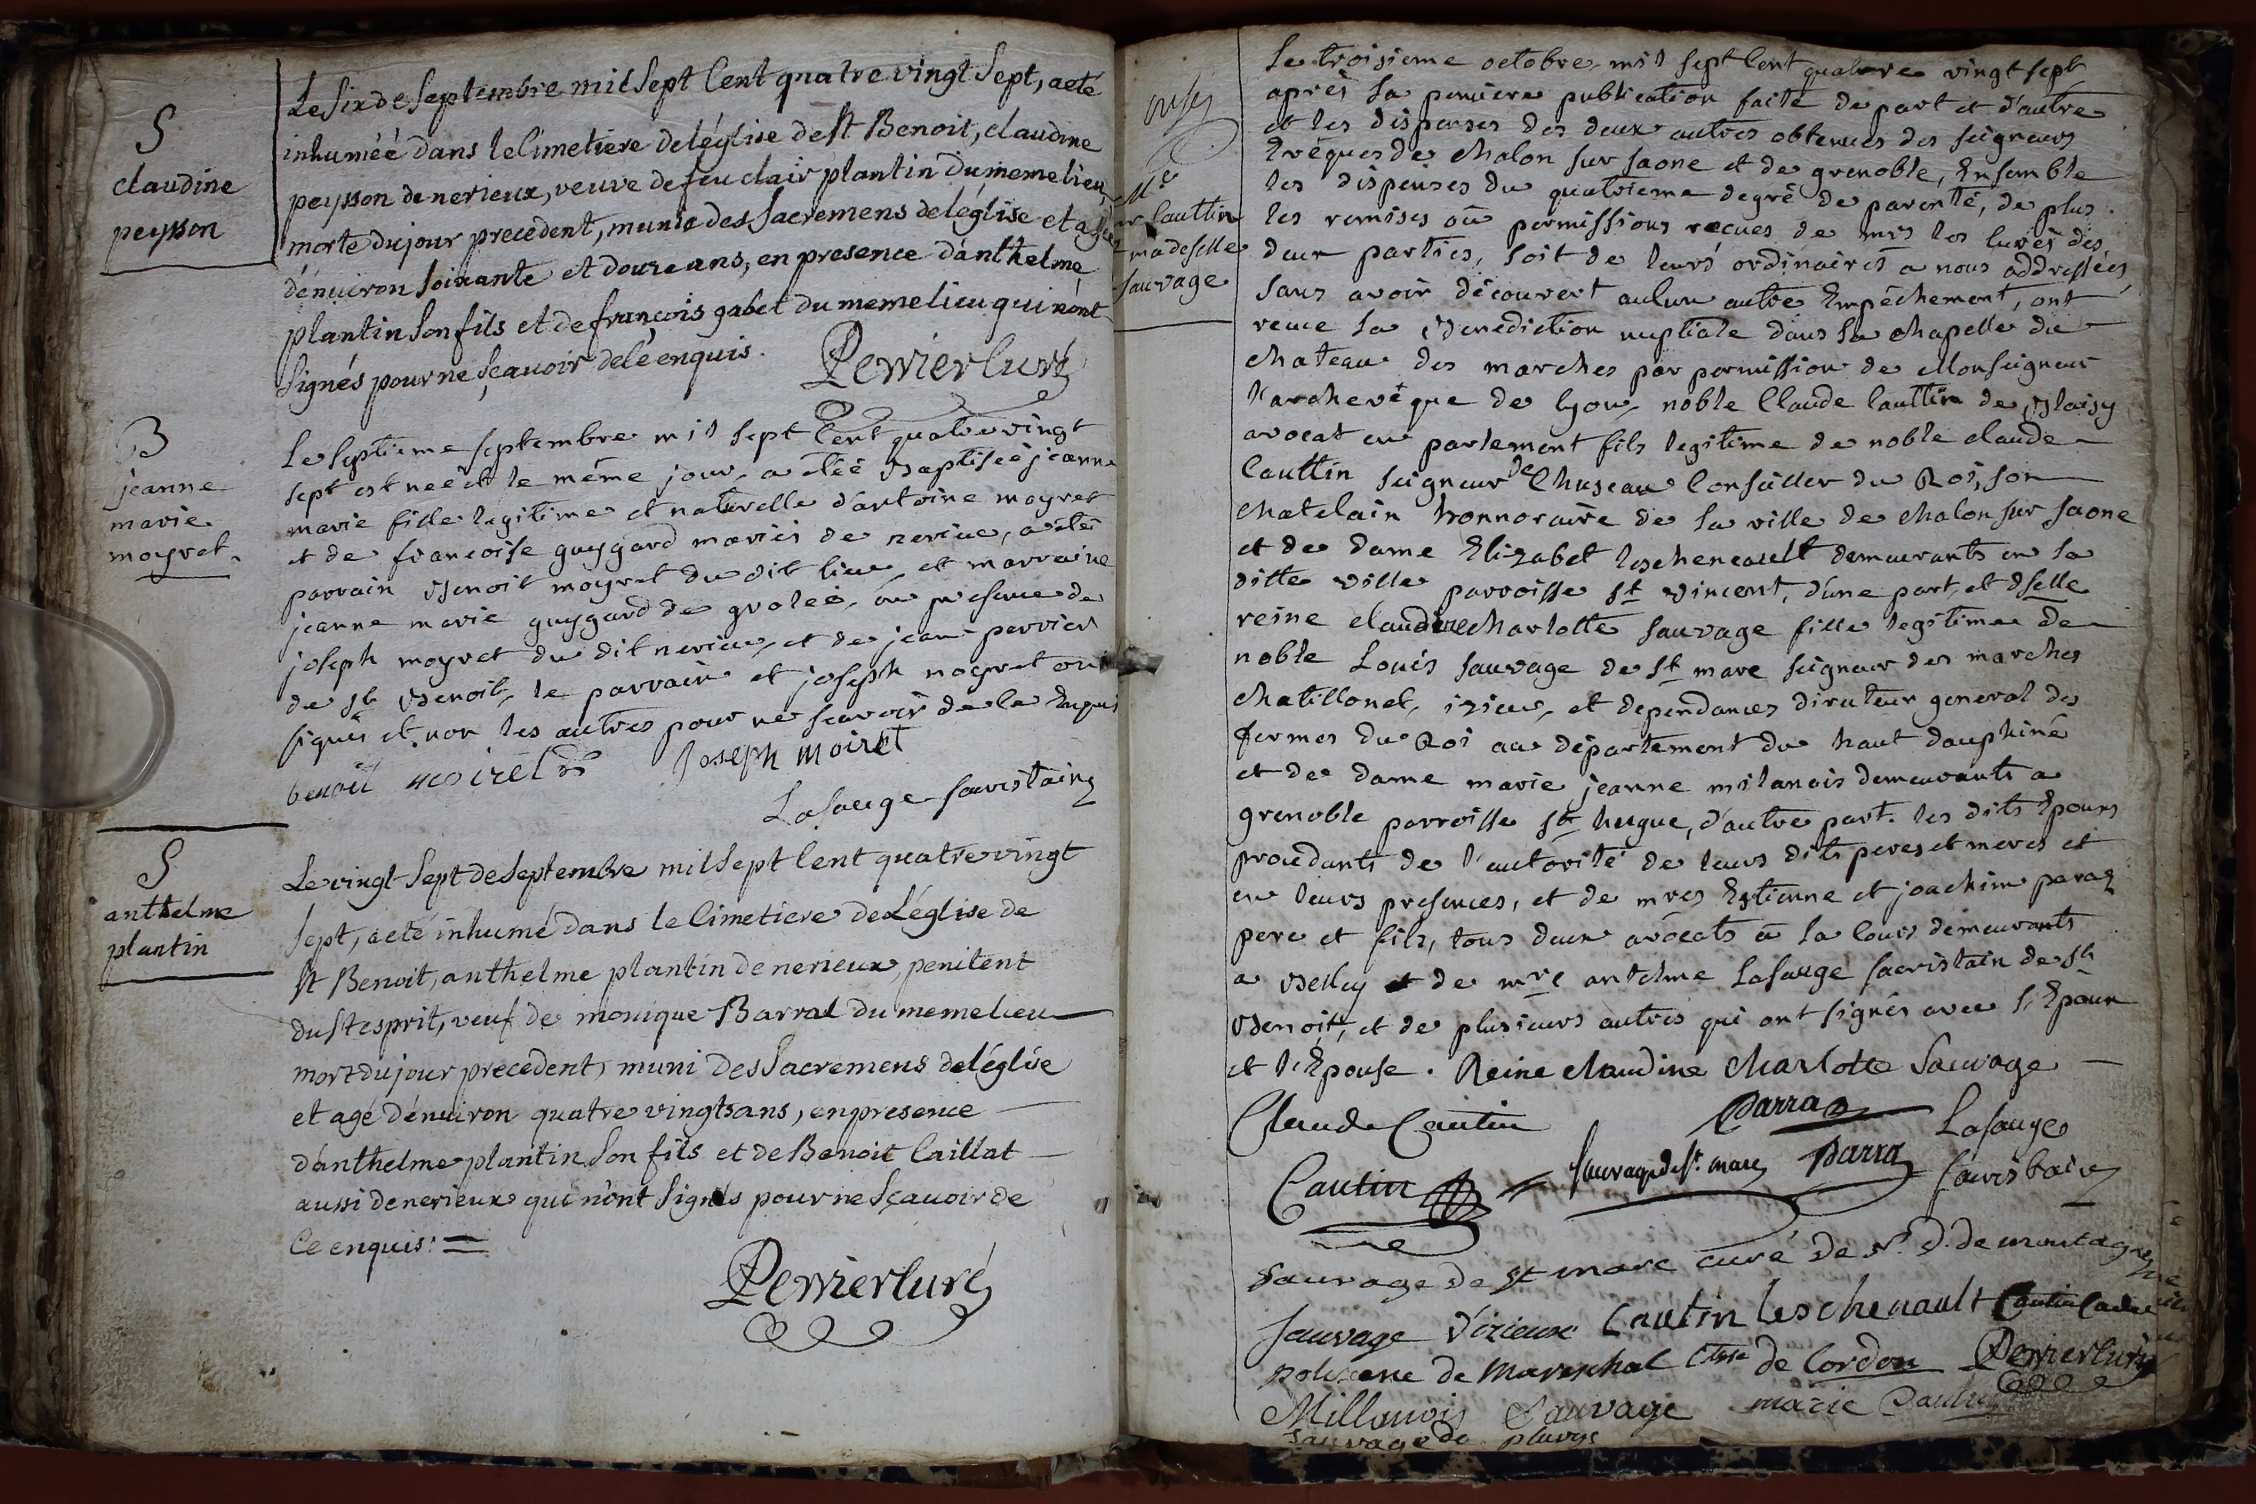 S
claudine
peysson
Le six de septembre mil sept Cent quatre vingt Sept, a eté
inhumeé dans le Cimetiere de léglise de St Benoit, claudine
peysson de nerieux, veuve de feu clair plantin du meme lieu,
morte du jour precedent, munie des Sacremens de léglise et agée
dénuiron soixante et douze ans, en presence dánthelme
plantin son fils et de françois gabet du meme lieu qui nónt
Signés pour ne sçauoir de lé enquis.
Perrier Curé
B
jeanne
marie
moyret
Le septieme septembre mil sept Cent quatre vingt
sept est neé et le même jour a étéé Baptiseé jeanne
marie fille legitime et naturelle d'antoine moyret
et de francoise guygard mariés de nerieu, a été
parrain Benoit moyret du dit lieu et marraine
jeanne marie guygard de groleé, en presence de
joseph moyret du dit nerieu, et de jean perrier
de St Benoit, le parrain et joseph moyret ont
signé et non les autres pour ne scavoir de le Enquis
benoit moiret
Joseph moiret
Lasauge sacristain
S
anthelme
plantin
Le vingt Sept de Septembre mil Sept Cent quatre vingt
sept, a eté inhumé dans le Cimetiere de Léglise de
St Benoit, anthelme plantin de nerieux, penitent
du St esprit, veuf de monique Barral du meme lieu
mort du jour precedent, muni des Sacremens de léglise
et agé dénuiron quatre vingts ans, en presence
dánthelme plantin Son fils et de Benoit Caillat
aussi de nerieux qui nónt Signés pour ne Sçauoir de
Ce enquis.
Perrier Curé
Mr Cauttin
madeselle
Sauvage
Le troisieme octobre mil sept Cent quatre vingt sept
après la premiere publication faite de part et d'autre
et les dispenses des deux autres obtenues des seigneurs
Evêques de chalon sur saone et de grenoble, Ensemble
les dispenses du quatrieme degré de parenté, de plus
les remises ou permissions recues de mrs les Curés des
deux parties, soit de leurs ordinaires a nous addressées,
sans avoir découvert aucun autre Empêchement, ont
recue la Benediction nuptiale dans la chapelle du
chateau des marches par permission de Monseigneur
l'archevêque de lyon, noble Claude Cauttin de Blaisy
avocat en parlement fils legitime de noble claude
Cauttin seigneur de Chuseau Conseiller du Roi, son
chatelain honnoraire de la ville de chalon sur saone
et de dame Elizabet leschenault demeurants en la
ditte ville parroisse St vincent, d'une part, et dselle
reine claudine charlotte sauvage fille legitime de
noble Louis sauvage de St marc seigneur des marches
chatillonet, izieu, et dependances directeur general des
fermes du Roi au département du haut dauphiné
et de dame marie jeanne milanois demeurants a
grenoble parroisse St hugue, d'autre part. les dits Epoux
procedants de l'autorité de leurs dits peres et meres et
en leurs presences, et de mres Estienne et joachim parra
pere et fils, tous deux avocats a la Cour demeurants
a Belley et de mre antelme Lasauge sacristain de St
Benoit, et de plusieurs autres qui ont signés avec l'Epoux
et l'Epouse. Reine claudine charlotte Sauvage
Claude Cautin
Parra
Lasauge
sacristain
Cautin
Sauvage de St. marc
Parra
Sauvage de St marc curé de N. D. de montagne
Sauvage d'izieux Cautin leschenault
polixene de Mareschal Ctsse de Cordon
Perrier Curé
Millanois Sauvage
marie
Sauvage de